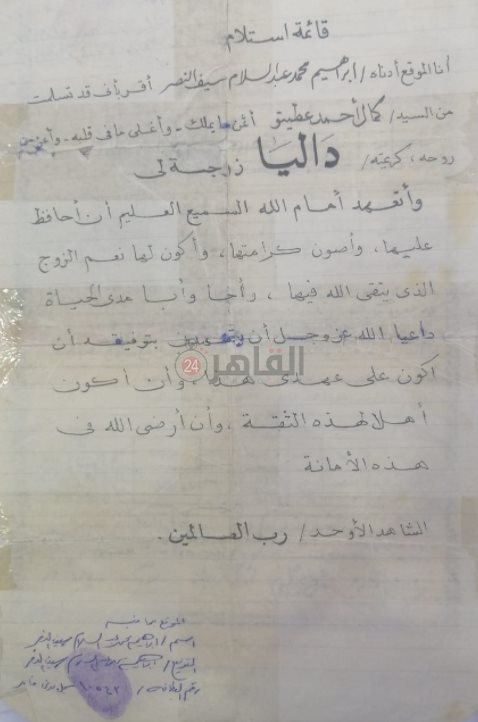 قائمة استلام
أنا الموقع أدناه / ابراهيم محمد عبد السلام سيف النصر أقر بأن قد تسلمت
من السيد / كمال أحمد عطيتو أثمن ما يملك - وأغلى ما فى قلبه - وأعز من
روحه، كريمته / داليا زوجة لى
وأتعهد أمام الله السميع العليم أن أحافظ
عليها، وأصون كرامتها، وأكون لها نعم الزوج
الذى يتقى الله فيها، وأخا وأبا مدى الحياة
داعيا الله عز وجل أن بتوفيقه أن
القاهرة 24
اكون على عهدى هذا، وأن أكون
أهلا لهذه الثقة، وأن أرضى الله فى
هذه الأمانة
الشاهد الأوحد / رب العالمين.
الموقع بما فيه
اسم / ابراهيم محمد عبد السلام سيف النصر
التوقيع / ابراهيم محمد عبد السلام سيف النصر
رقم البطاقة /